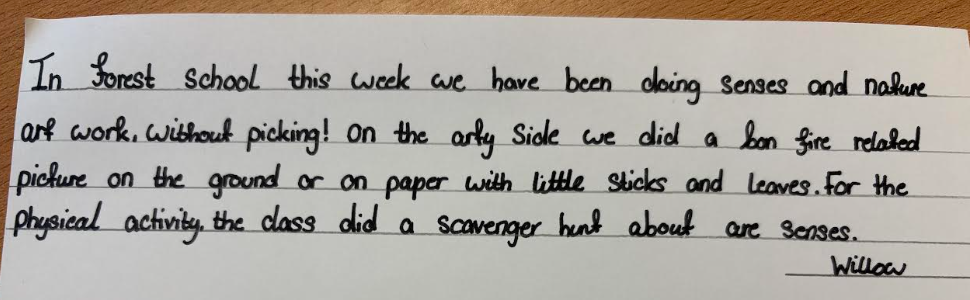 In forest school this week we have been doing senses and nature
art work, without picking! On the arty side we did a bon fire related
picture on the ground or on paper with little sticks and leaves. For the
physical activity, the class did a scavenger hunt about are senses.
Willow